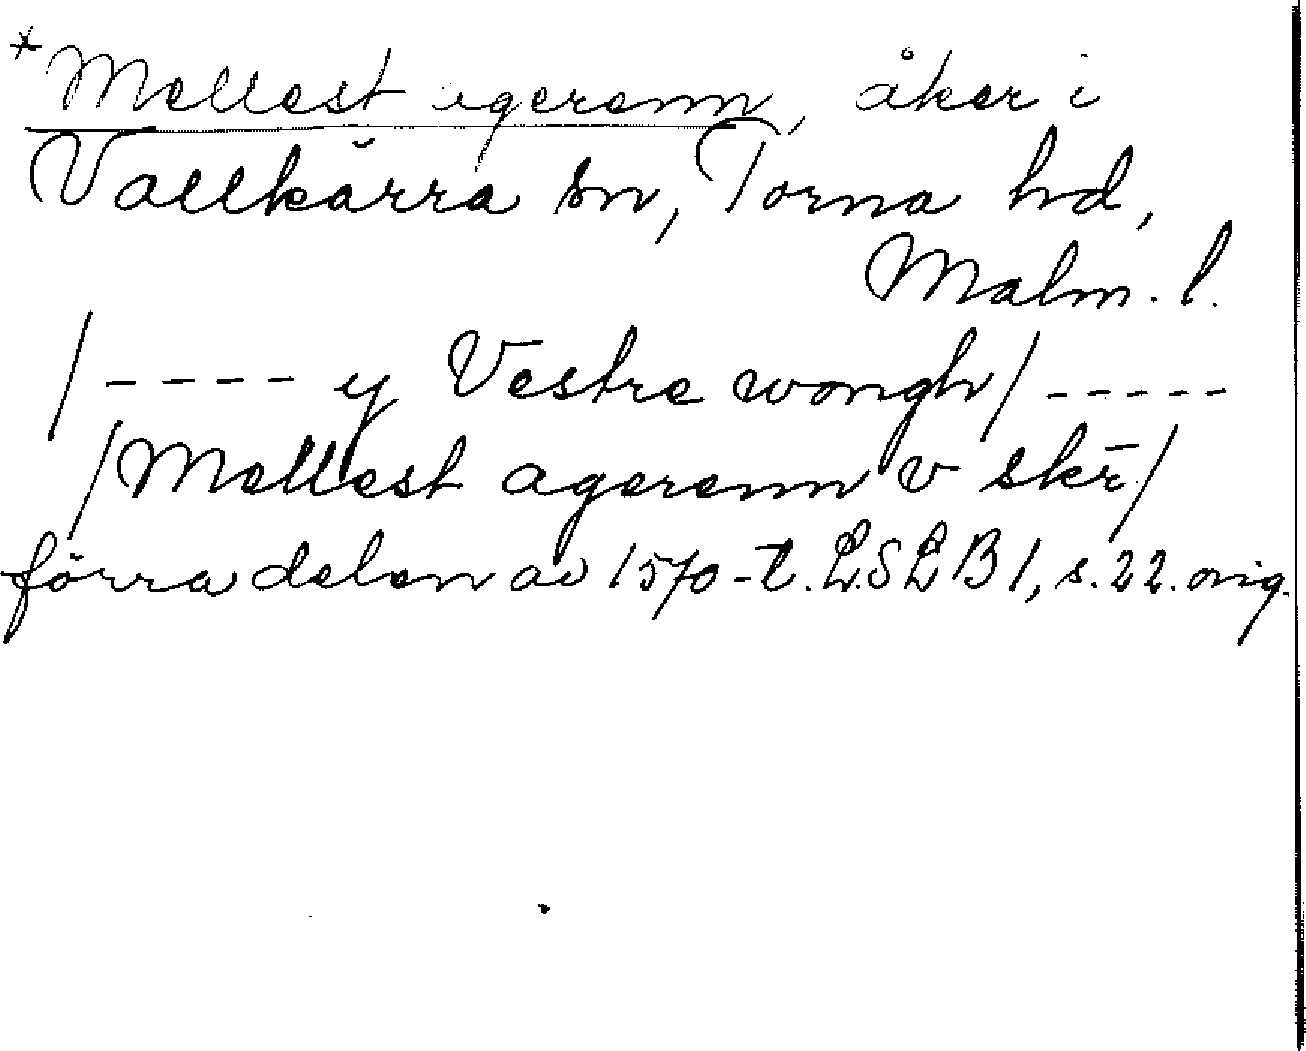 *Mellest agerenn, åker i
Vallkärra sn, Torna hd,
Malm. l.
/---- y Vestre wongh/-----
/Mellest agerenn v skr̄/
förra delen av 1570-t. LSLB1, s. 22. orig.